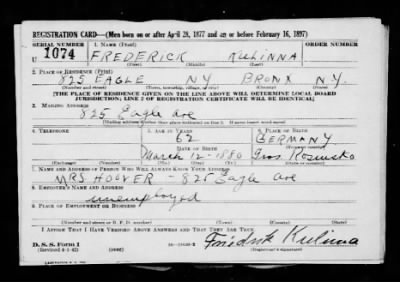 REGISTRATION CARD—(Men born on or after April 28, 1877 and on or before February 16, 1897)
SERIAL NUMBER 1. NAME (Print) ORDER NUMBER
U 1074 FREDERICK KULINNA
(First) (Middle) (Last)
2. PLACE OF RESIDENCE (Print)
825 EAGLE NY BRONX NY.
(Number and street) (Town, township, village, or city) (County) (State)
[THE PLACE OF RESIDENCE GIVEN ON THE LINE ABOVE WILL DETERMINE LOCAL BOARD
JURISDICTION; LINE 2 OF REGISTRATION CERTIFICATE WILL BE IDENTICAL]
3. MAILING ADDRESS
825 Eagle Ave
[Mailing address if other than place indicated on line 2. If same insert word same]
4. TELEPHONE 5. AGE IN YEARS 6. PLACE OF BIRTH
62 GERMANY
DATE OF BIRTH (Town or county)
March 12-1880 Gros
(Exchange) (Number) (Mo.) (Day) (Yr.) (State or country)
7. NAME AND ADDRESS OF PERSON WHO WILL ALWAYS KNOW YOUR ADDRESS
MRS HOOVER - 825 Eagle Ave
8. EMPLOYER'S NAME AND ADDRESS
unemployed
9. PLACE OF EMPLOYMENT OR BUSINESS
(Number and street or R. F. D. number) (Town) (County) (State)
I AFFIRM THAT I HAVE VERIFIED ABOVE ANSWERS AND THAT THEY ARE TRUE.
D. S. S. Form 1
(Revised 4-1-42) (over) Friedrik Kulinna
(Registrant's signature)